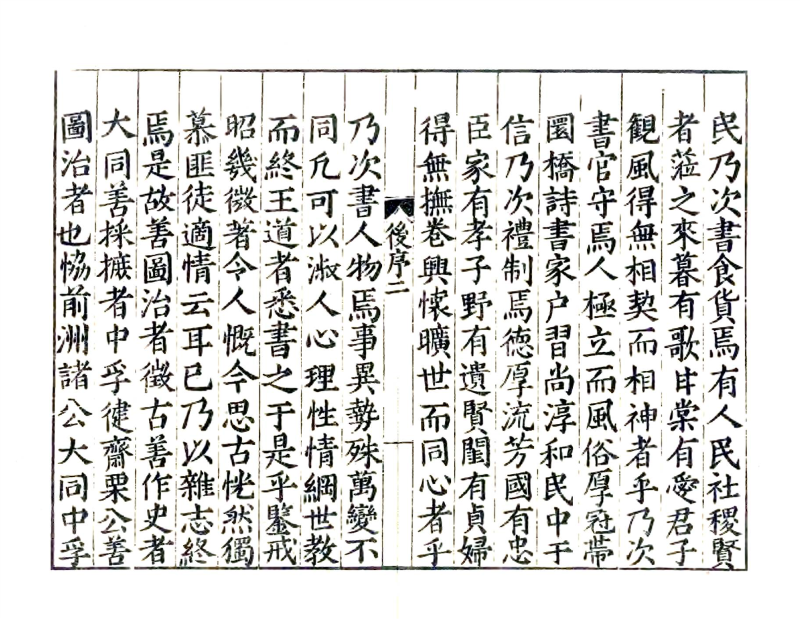 民乃次書食貨焉有人民社稷賢
者蒞之來暮有歌甘棠有愛君子
觀風得無相契而相神者乎乃次
書官守焉人極立而風俗厚冠帶
圜橋詩書家户習尚淳和民中于
信乃次禮制焉德厚流芳國有忠
臣家有孝子野有遺賢閨有貞婦
得無撫卷興懷曠世而同心者乎
後序二
乃次書人物焉事異勢殊萬變不
同凡可以淑人心理性情綱世教
而終王道者悉書之于是乎鑒戒
昭幾微著令人慨今思古恍然獨
慕匪徒適情云耳已乃以雜志終
焉是故善圖治者徵古善作史者
大同善採摭者中孚徤齋栗公善
圖治者也恊前洲諸公大同中孚